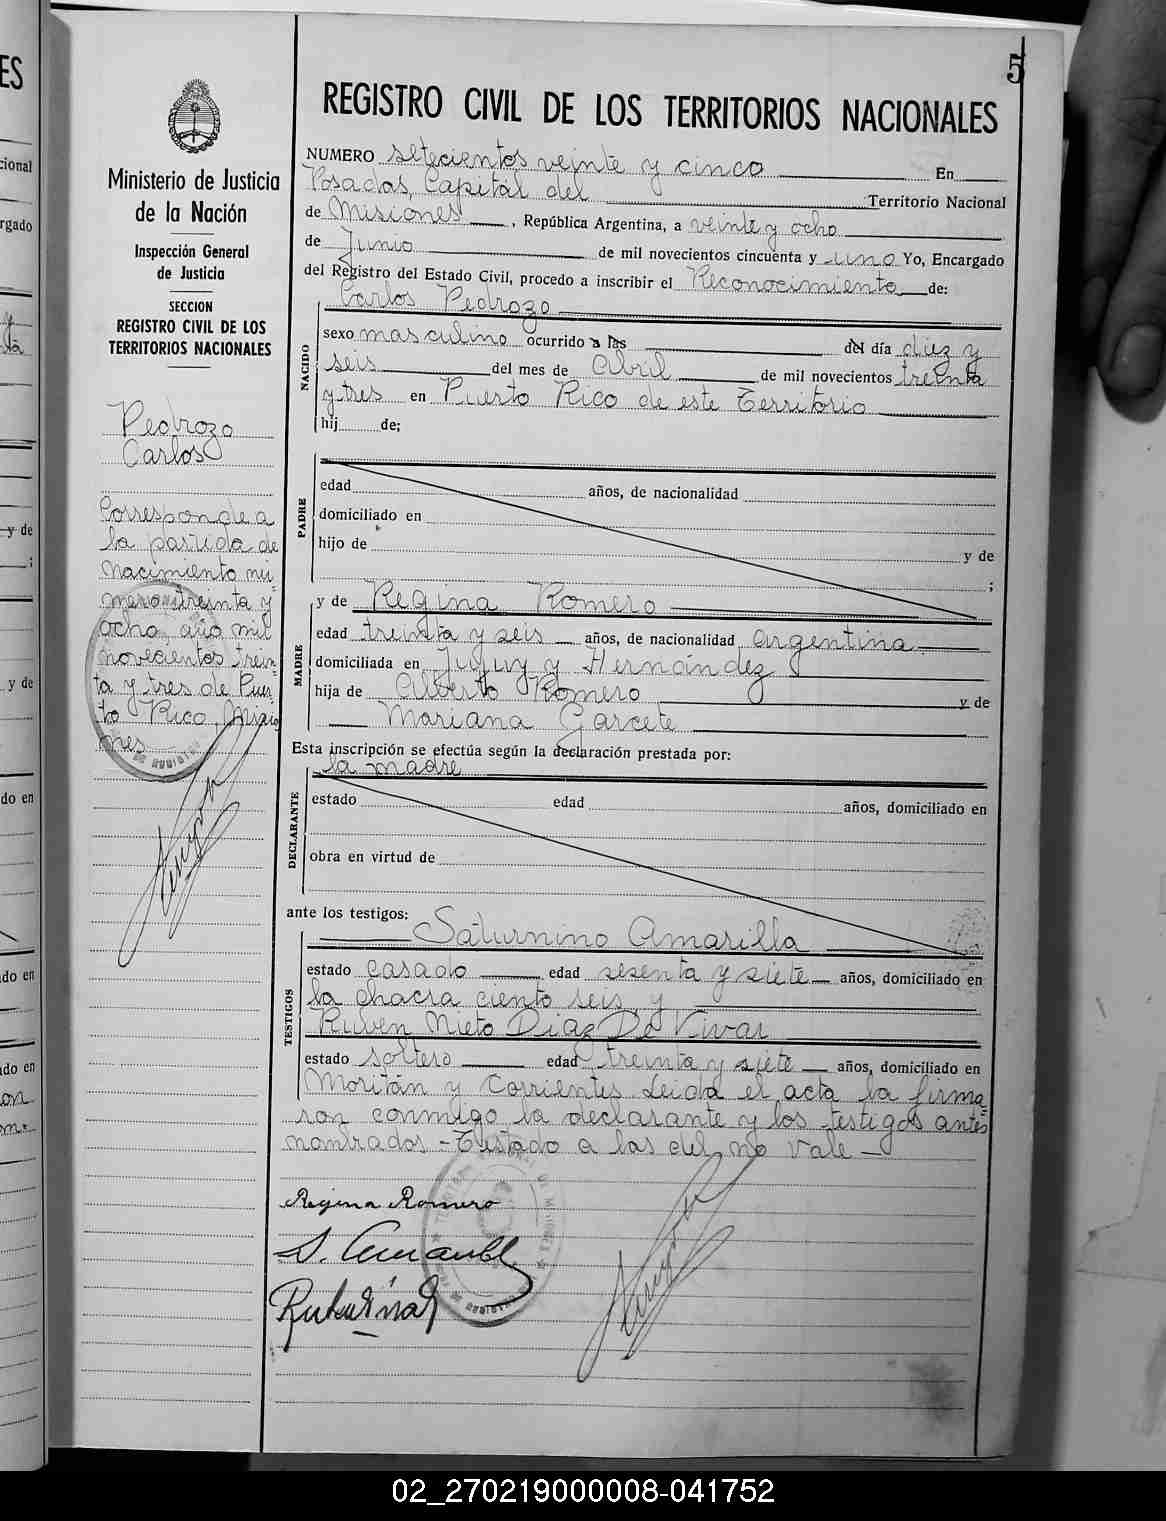 5
REGISTRO CIVIL DE LOS TERRITORIOS NACIONALES
Ministerio de Justicia
de la Nación
Inspección General
de Justicia
SECCION
REGISTRO CIVIL DE LOS
TERRITORIOS NACIONALES
Pedrozo
Carlos
Corresponde a
la partida de
nacimiento nú-
mero treinta y
ocho, año mil
novecientos trein-
ta y tres de Puer-
to Rico, Misio
nes
NUMERO setecientos veinte y cinco En
Posadas, Capital del Territorio Nacional
de Misiones, República Argentina, a veinte y ocho
de Junio de mil novecientos cincuenta y uno Yo, Encargado
del Registro del Estado Civil, procedo a inscribir el Reconocimiento de:
Carlos Pedrozo
NACIDO
sexo masculino ocurrido a las del día diez y
seis del mes de Abril de mil novecientos treinta
y tres en Puerto Rico de este Territorio
hij de;
PADRE
edad años, de nacionalidad
domiciliado en
hijo de y de
;
y de Regina Romero
MADRE
edad treinta y seis años, de nacionalidad argentina
domiciliada en Jujuy y Hernández
hija de Alberto Romero y de
Mariana Garcete
Esta inscripción se efectúa según la declaración prestada por:
la madre
DECLARANTE
estado edad años, domiciliado en
obra en virtud de
ante los testigos:
Saturnino Amarilla
TESTIGOS
estado casado edad sesenta y siete años, domiciliado en
la chacra ciento seis, y
Ruben Nieto Diaz De Vivar
estado soltero edad treinta y siete años, domiciliado en
Moritán y Corrientes Leida el acta la firma-
ron conmigo la declarante y los testigos antes
nombrados - Testado a las del no vale -
Regina Romero
02_270219000008-041752